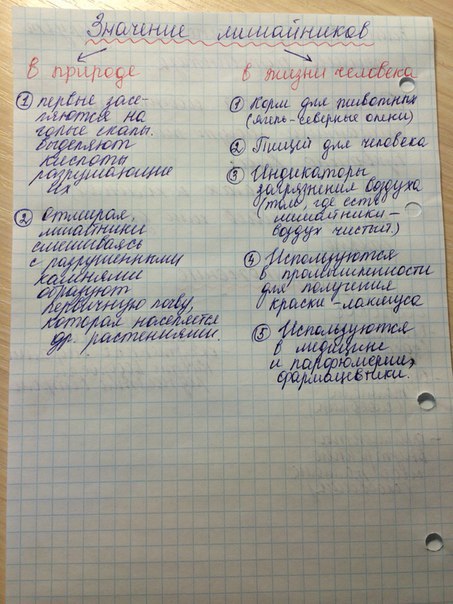 Значение лишайников
в природе
① первые засе-
ляются на
голые скалы.
Выделяют
кислоты
разрушающие
их
② Отмирая,
лишайники
смешиваясь
с разрушенными
камнями
образуют
первичную почву,
которая населяется
др. растениями.
в жизни человека
① Корм для животных
(ягель-северные олени)
② Пищей для человека
③ Индикаторы
загрязнения воздуха
(там, где есть
лишайники -
воздух чистый)
④ Используются
в промышленности
для получения
краски - лакмуса
⑤ Используются
в медицине
и парфюмерии,
фармацевтики.